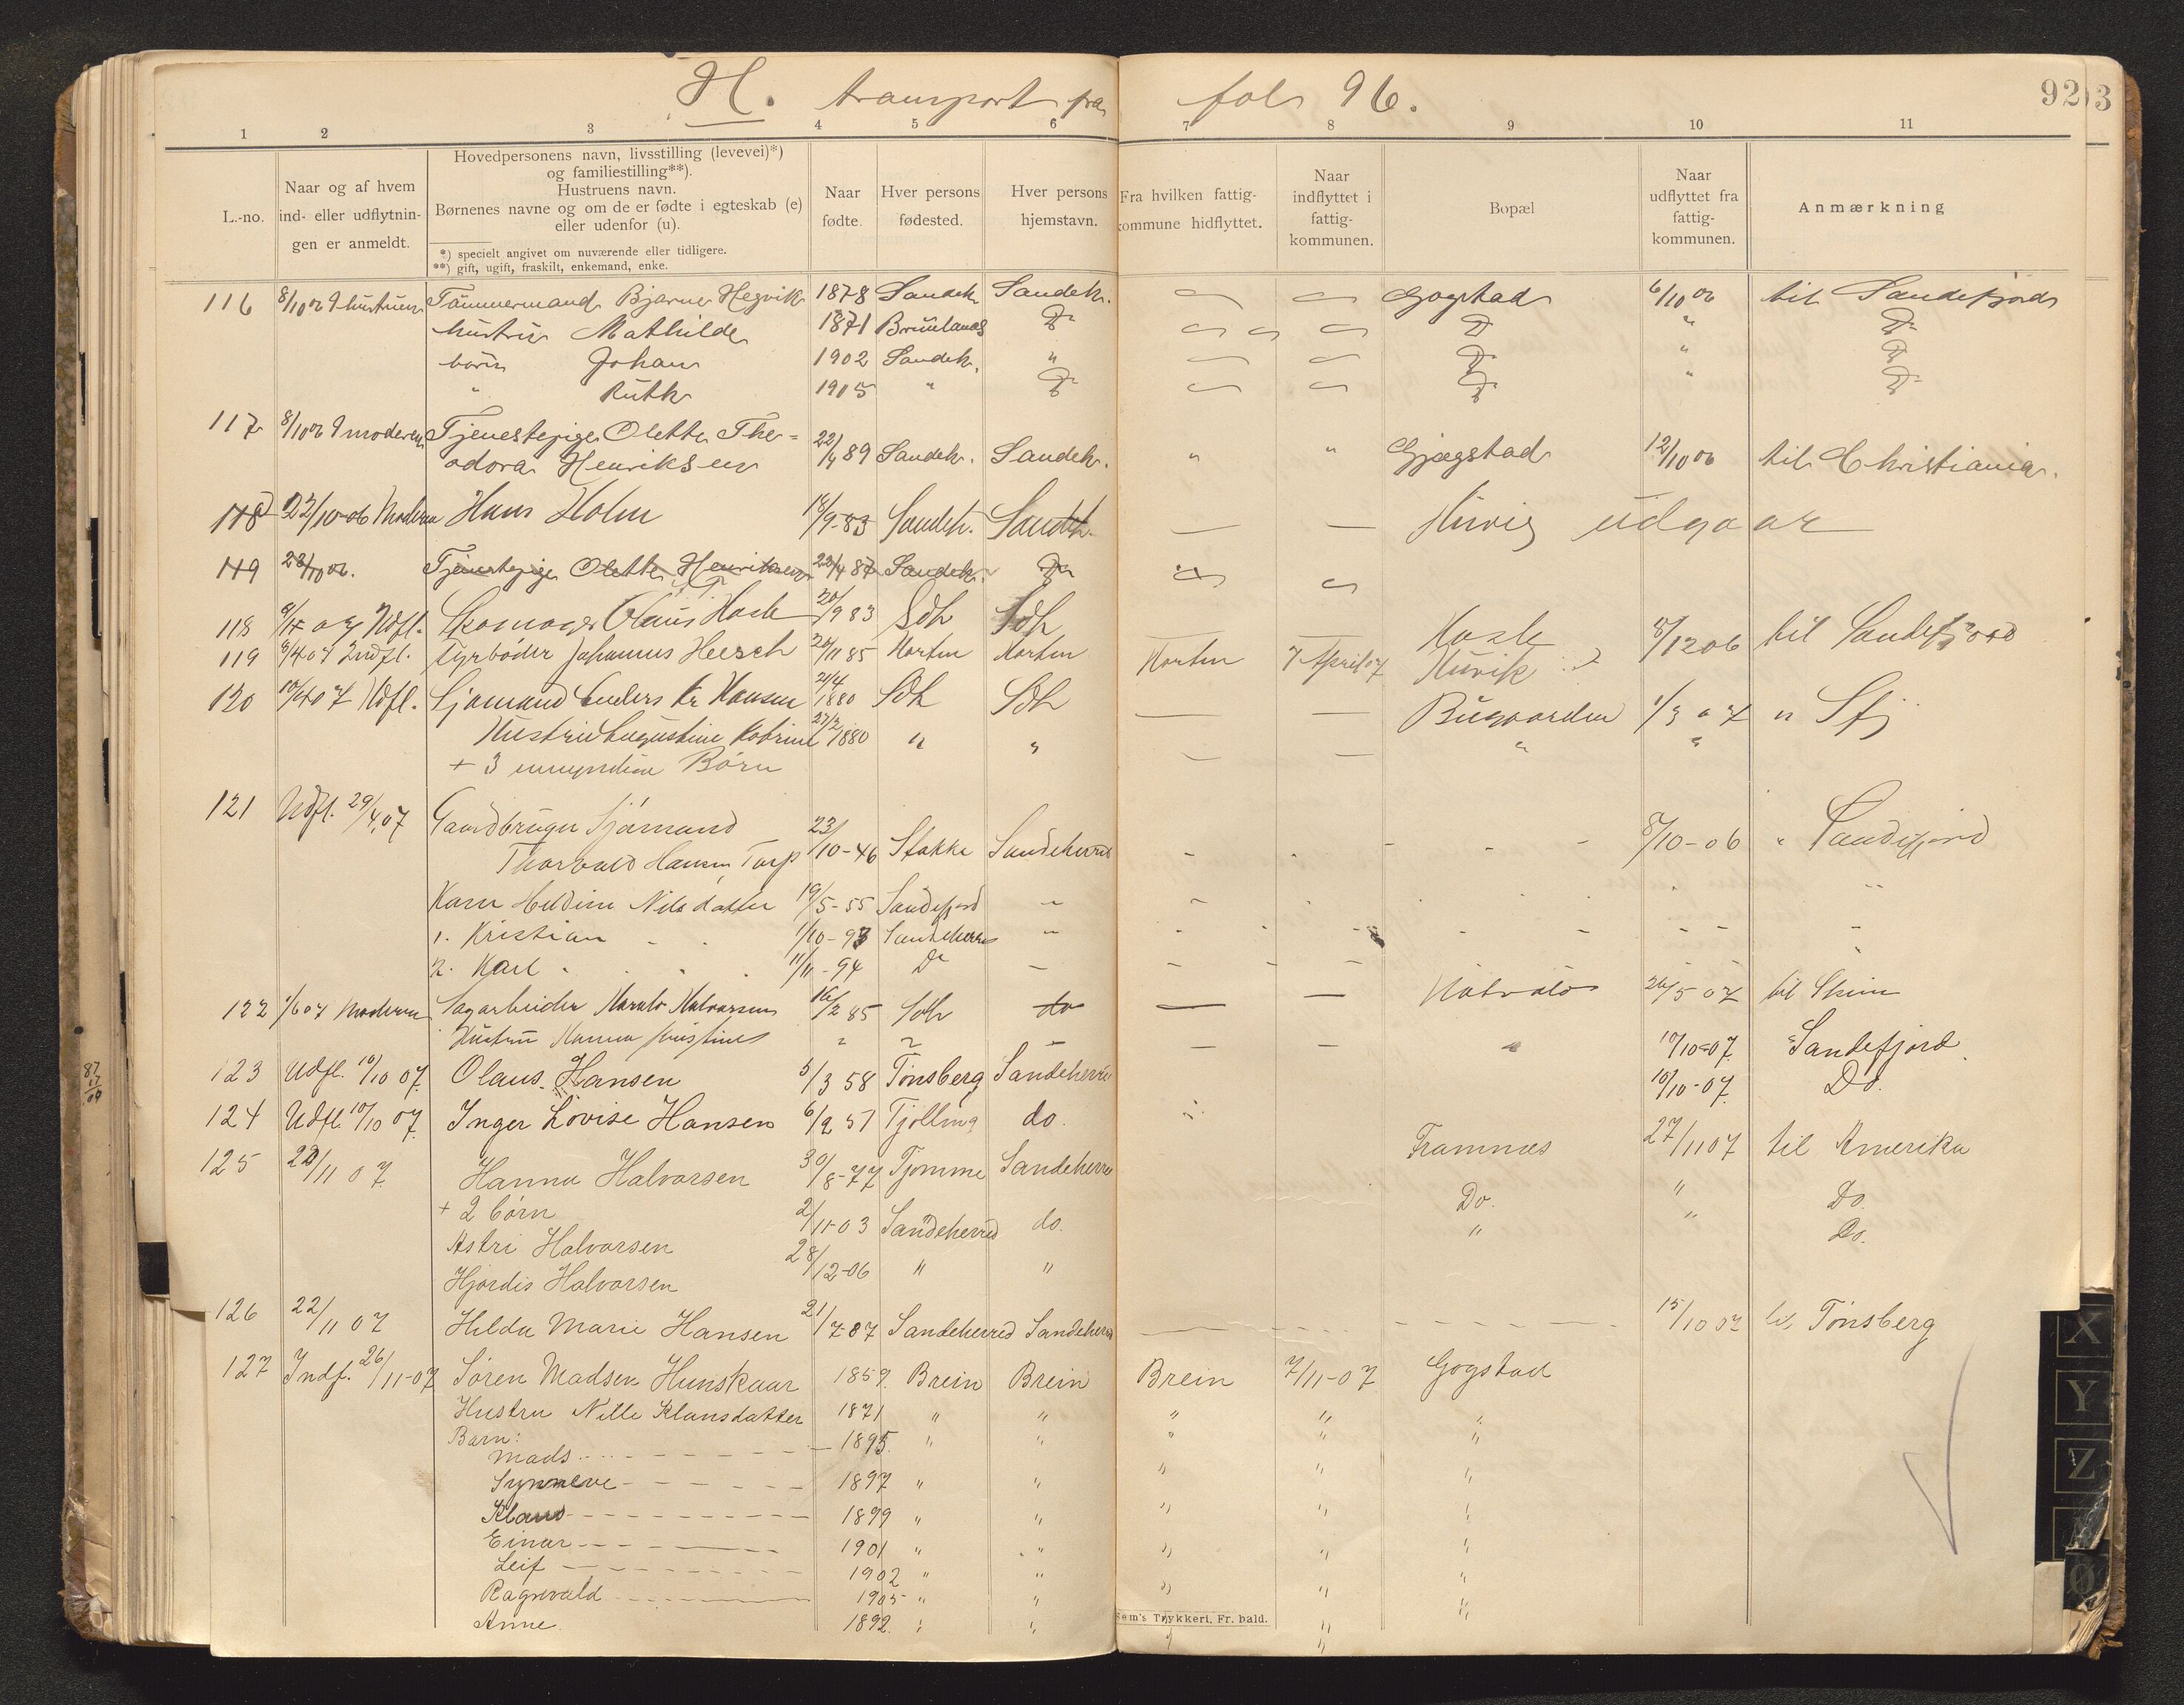 H. transport fra fol 96.
92 3
1 2 3 4 5 6 7 8 9 10 11
L.-no.
Naar og af hvem ind- eller udflytnin- gen er anmeldt.
Hovedpersonens navn, livsstilling (levevei)*)
og familiestilling**).
Hustruens navn.
Børnenes navne og om de er fødte i egteskab (e)
eller udenfor (u).
*) specielt angivet om nuværende eller tidligere.
**) gift, ugift, fraskilt, enkemand, enke.
Naar fødte.
Hver persons fødested.
Hver persons hjemstavn.
Fra hvilken fattig- kommune hidflyttet.
Naar indflyttet i fattig- kommunen.
Bopæl
Naar udflyttet fra fattig- kommunen.
Anmærkning
116 8/10 06 hustruen Tömmermand Bjarne Hegvik 1878 Sandeh. Sandeh. Gogstad 6/10 06 til Sandefjord
hustru Mathilde 1871 Brunlanæs Do D " Do
barn Johan 1902 Sandeh. " Do " Do
" Ruth 1905 " Do Do " Do
117 8/10 06 moderen Tjenestepige Olette The=
odora Henriksen 22/4 89 Sandeh. Sandeh. " " Gjøgstad 12/10 06 til Christiania.
118 22/10-06 Moderen Hans Holm 18/9-83 Sandeh. Sandeh. — — Huvig udgaar
119 23/10 06. Tjenestepige Olette Henriksen 22/4 87 Sandeh. Do
118 Udfl. Skomager Olaus Hasle 20/9 83 Sdh Sdh Hasle 8/12 06 til Sandefjord
119 9/4 07 Indfl. Fyrbøder Johannes Heesch 24/11 85 Horten Horten Horten 7 April 07 Huvik
120 Udfl. Sjømand Anders Kr Hansen 24/4 1880 Sdh Sdh — — Bugaarden 1/3 07 " Sfj
Hustru Augustine Katrine 27/2 1880 " " — — " "
+ 3 umyndige Børn
121 Udfl. 29/4,07 Gaardbruger Sjømand
Thorvald Hansen Torp 23/10-46 Stokke Sandeherred 8/10-06 " Sandefjord
Karen Heldine Nilsdatter 19/5-55 Sandefjord " "
1. Kristian 1/10-93 Sandeherred "
2. Karl 11/11-94 Do —
122 1/6 07 Moderen Sagarbeider Harald Halvorsen 16/2 85 Sdh do — — 26/5 07 til Skien
Hustru Hanna Kristine " " — — — "
123 Udfl. 10/10 07 Olaus Hansen 5/3 58 Tønsberg Sandeherred 10/10-07 Sandefjord
124 Udfl. 10/10 07 Inger Lovise Hansen 6/2 51 Tjølling do. 10/10-07 Do.
125 22/11 07 Hanna Halvorsen 30/8-77 Tjømme Sandeherred Framnæs 27/11 07 til Amerika
+ 2 børn Do. " Do.
Astri Halvorsen 2/11-03 Sandeherred do. " " Do.
Hjørdis Halvorsen 28/12-06 " "
126 22/11 07 Hilda Marie Hansen 21/7-87 Sandeherred Sandeherred 15/10 07 til Tönsberg
127 Indf. 26/11-07 Sören Madsen Hunskaar 1859. Brein Brein Brein 7/11-07 Gogstad
Hustru Nille Klausdatter 1871 " " " " "
Barn:
Mads 1895. " " " " "
Synneve 1897 " " " " "
Klaus 1899 " " " " "
Einar 1901 " " " " "
Leif 1902 " " " " "
Ragnvald 1905 " " " " "
Anne 1892. " " " "
Sem's Trykkeri, Fr. bald.
87
17
09
X
Y
Z
Ø